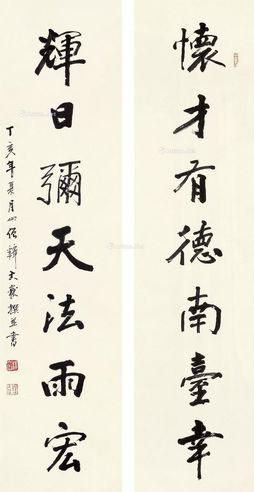 懷才有德南臺幸
輝日彌天法雨宏
丁亥年夏月山僧
大
撰並書